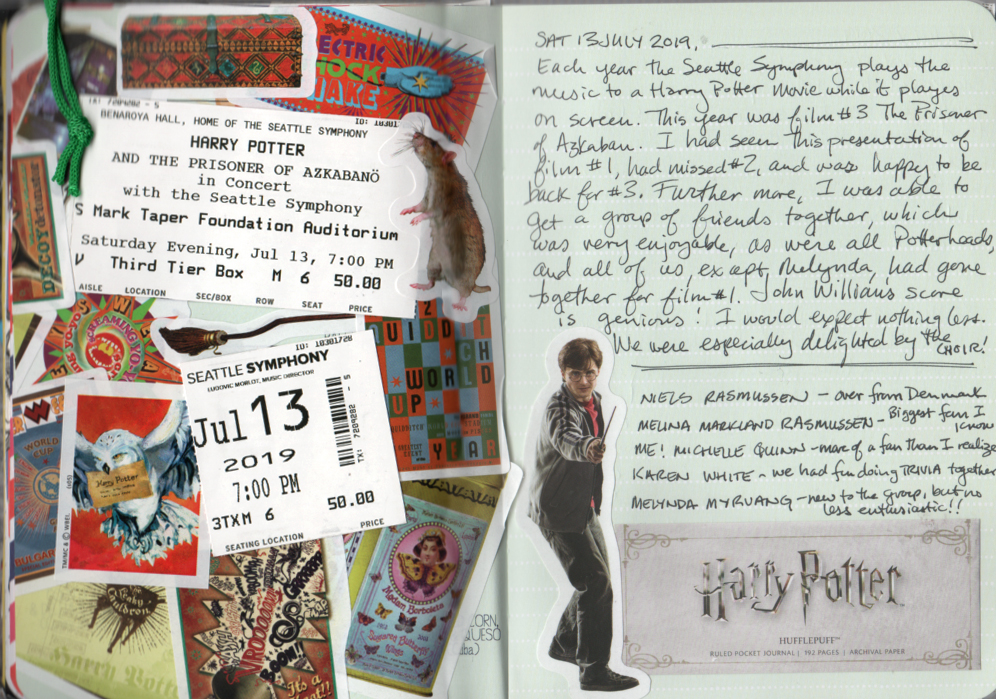 ELECTRIC
SHOCK
SHAKE
TX: 7209282 - S
ID: 10301
BENAROYA HALL, HOME OF THE SEATTLE SYMPHONY
HARRY POTTER
AND THE PRISONER OF AZKABANÖ
in Concert
with the Seattle Symphony
S Mark Taper Foundation Auditorium
Saturday Evening, Jul 13, 7:00 PM
Third Tier Box M 6 50.00
AISLE LOCATION SEC/BOX ROW SEAT PRICE
DECOY
SCREAMING YOYO
PRICE
ID: 10301728
SEATTLE SYMPHONY
LUDOVIC MORLOT, MUSIC DIRECTOR
Jul 13
2019
7:00 PM
50.00
3TXM 6
PRICE
SEATING LOCATION
TX: 7209282 - S
QUIDDITCH
WORLD
CUP
YEAR
WORLD
CUP
BULGAR
Harry Potter
TM/MIC & © WBEI.
(s05)
Leaky
Cauldron
Harry Potter
It's a
Madam Borboleta
Sugared Butterfly
Wings
CORN,
QUESO
SAT 13 JULY 2019.
Each year the Seattle Symphony plays the
music to a Harry Potter movie while it plays
on screen. This year was film #3 The Prisoner
of Azkaban. I had seen this presentation of
film #1, had missed #2, and was happy to be
back for #3. Further more, I was able to
get a group of friends together, which
was very enjoyable, as were all Potterheads,
and all of us, except, Melynda, had gone
together for film #1. John William's score
is genious! I would expect nothing less.
We were especially delighted by the CHOIR!
NIELS RASMUSSEN - over from Denmark
MELINA MARKLAND RASMUSSEN - Biggest fan I know
ME! MICHELLE QUINN - more of a fan than I realize
KAREN WHITE - we had fun doing TRIVIA together
MELYNDA MYRUANG - new to the group, but no
less enthusiastic!!
Harry Potter
HUFFLEPUFF™
RULED POCKET JOURNAL | 192 PAGES | ARCHIVAL PAPER